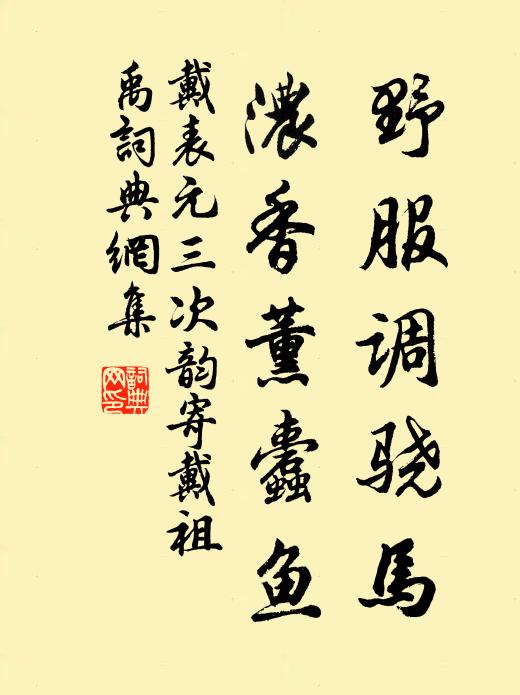 野服调骁馬
濃香薰蠹鱼
戴表元三次韵寄戴祖
禹詞典網集
詞典
网印